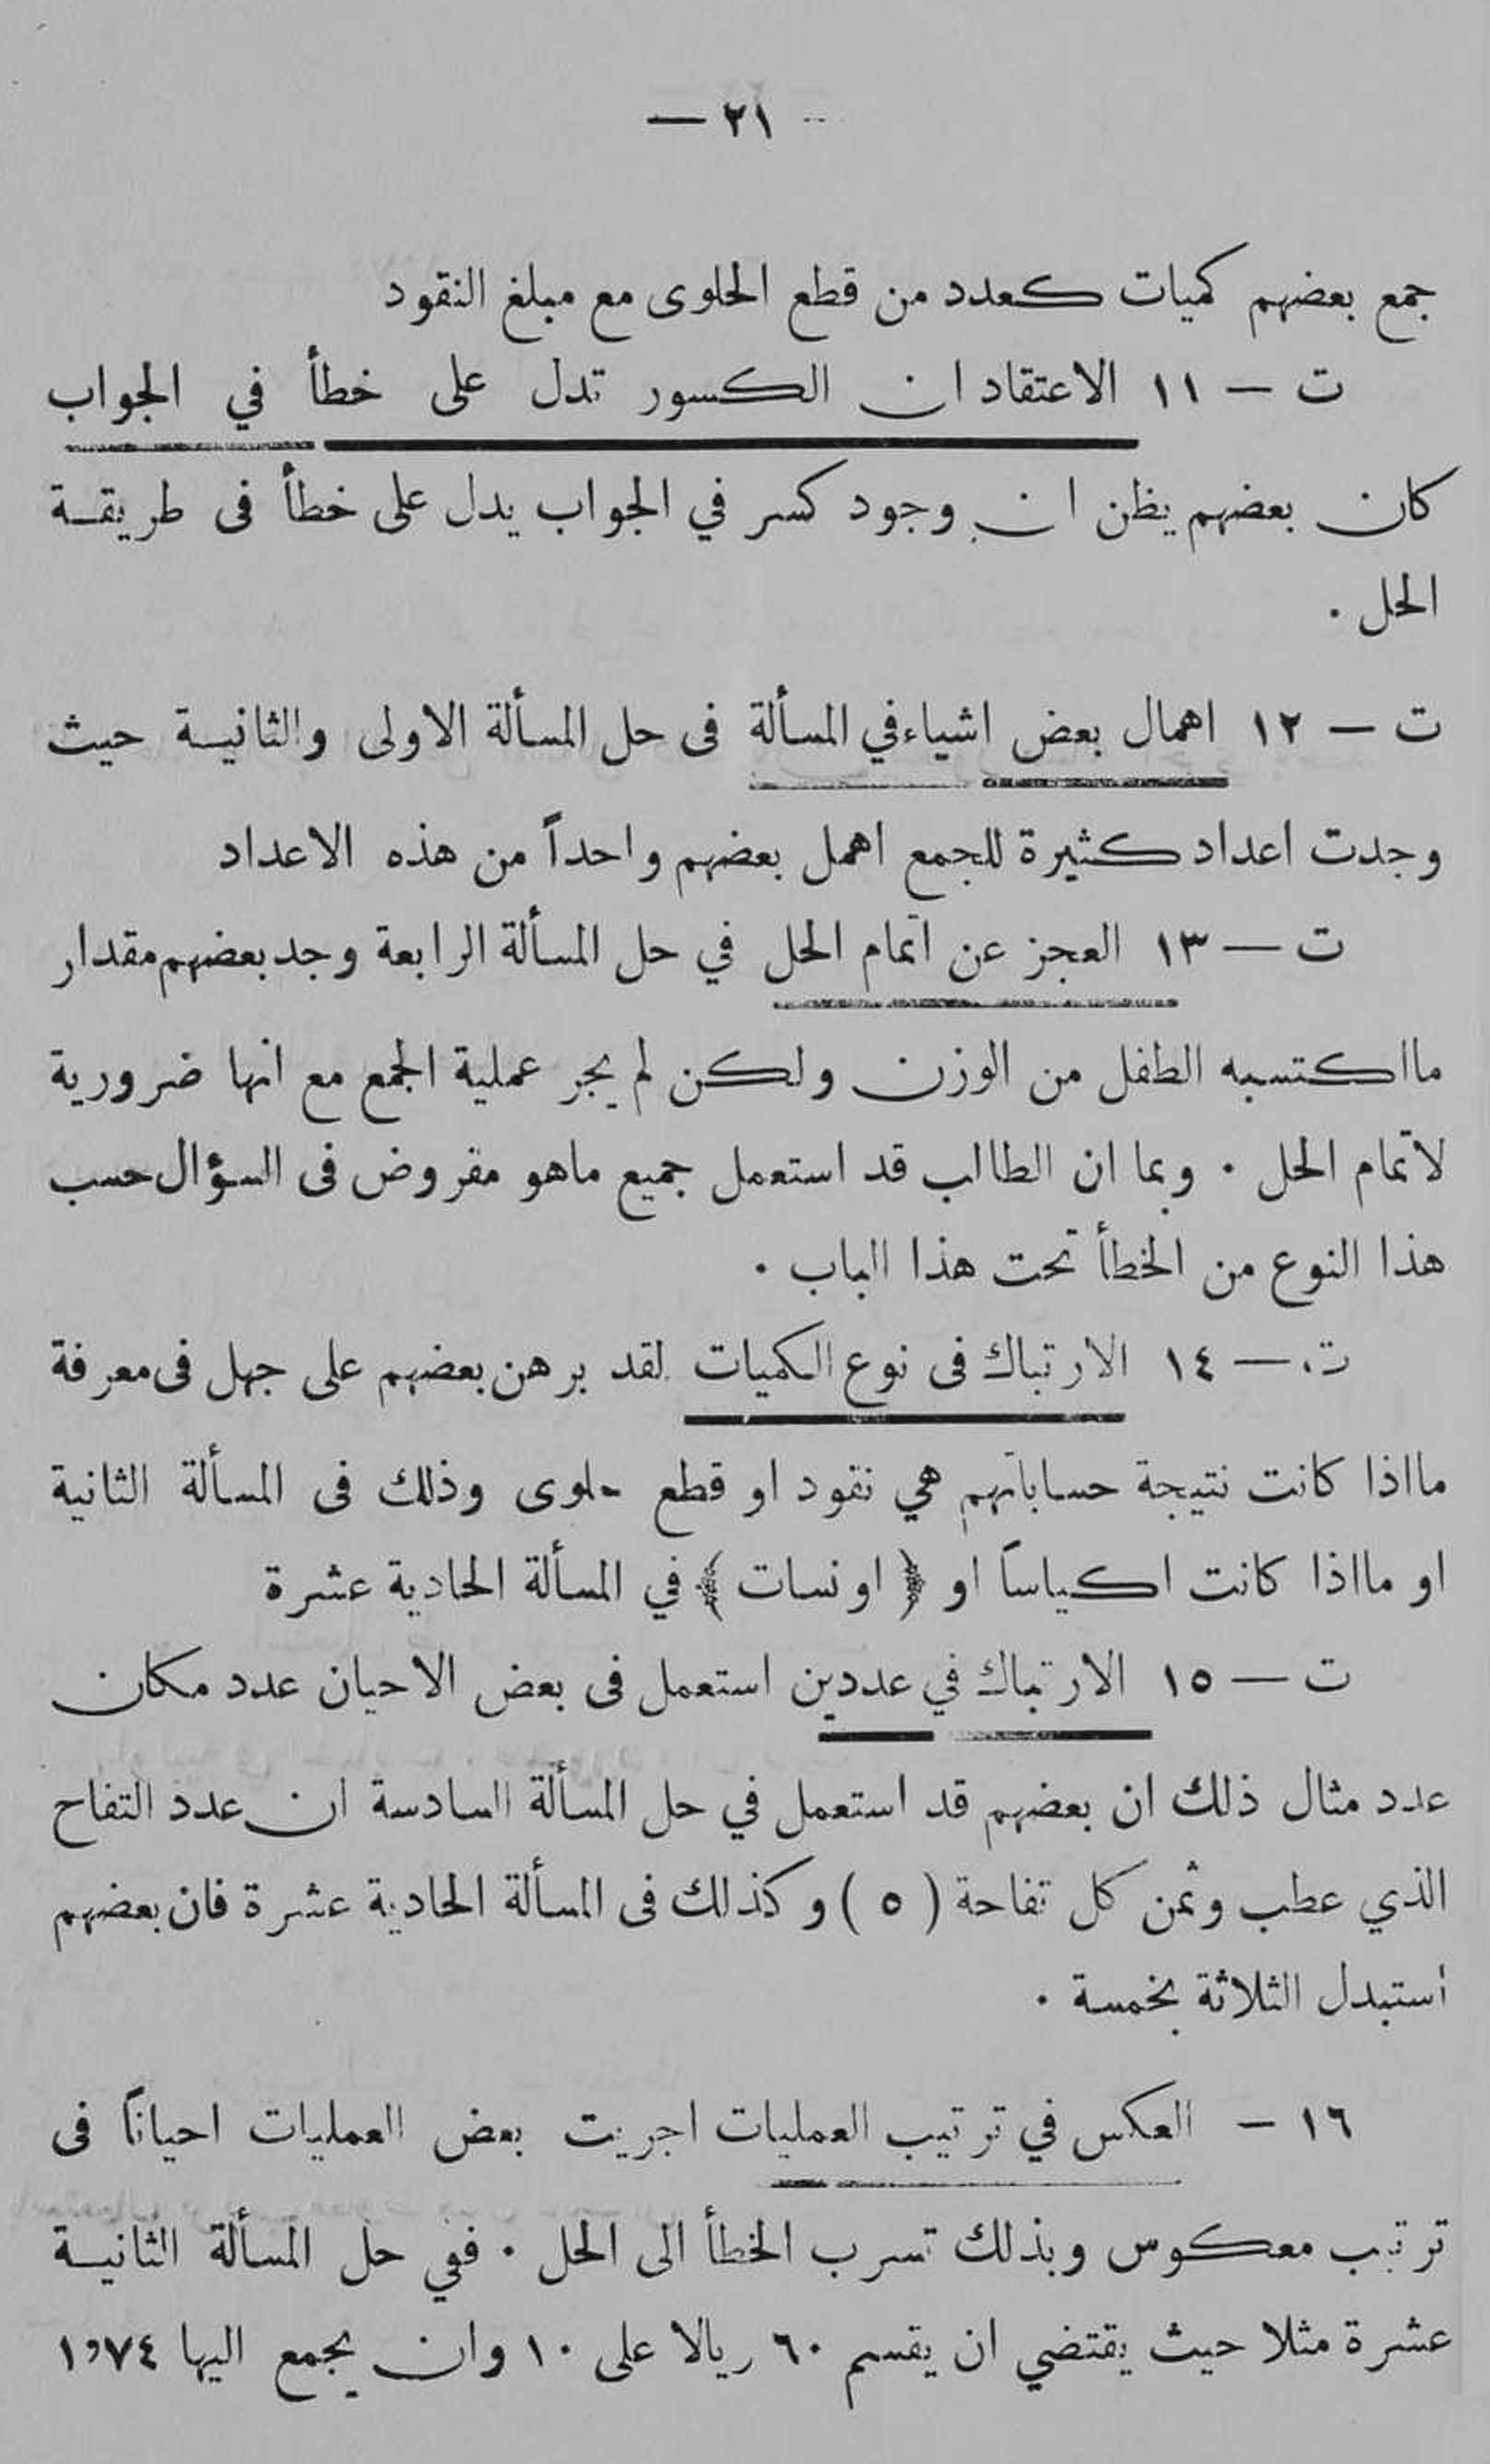 — ٢١ —
جمع بعضهم كميات كعدد من قطع الحلوى مع مبلغ النقود
ت — ١١ الاعتقاد ان الكسور تدل على خطأ في الجواب
كان بعضهم يظن ان وجود كسر في الجواب يدل على خطأ فى طريقة
الحل .
ت — ١٢ اهمال بعض اشياء في المسألة فى حل المسألة الاولى والثانية حيث
وجدت اعداد كثيرة للجمع اهمل بعضهم واحداً من هذه الاعداد
ت — ١٣ العجز عن اتمام الحل في حل المسألة الرابعة وجد بعضهم مقدار
ما اكتسبه الطفل من الوزن ولكن لم يجر عملية الجمع مع انها ضرورية
لاتمام الحل . وبما ان الطالب قد استعمل جميع ماهو مفروض فى السؤال حسب
هذا النوع من الخطأ تحت هذا الباب .
ت — ١٤ الارتباك فى نوع الكميات لقد برهن بعضهم على جهل فى معرفة
ما اذا كانت نتيجة حساباتهم هي نقود او قطع حلوى وذلك فى المسألة الثانية
او ما اذا كانت اكياساً او ﴿ اونسات ﴾ في المسألة الحادية عشرة
ت — ١٥ الارتباك في عددين استعمل فى بعض الاحيان عدد مكان
عدد مثال ذلك ان بعضهم قد استعمل في حل المسألة السادسة ان عدد التفاح
الذي عطب وثمن كل تفاحة ( ٥ ) وكذلك فى المسألة الحادية عشرة فان بعضهم
استبدل الثلاثة بخمسة .
١٦ — العكس في ترتيب العمليات اجريت بعض العمليات احياناً فى
ترتيب معكوس وبذلك تسرب الخطأ الى الحل . ففي حل المسألة الثانية
عشرة مثلا حيث يقتضي ان يقسم ٦٠ ريالا على ١٠ وان يجمع اليها ١٫٧٤